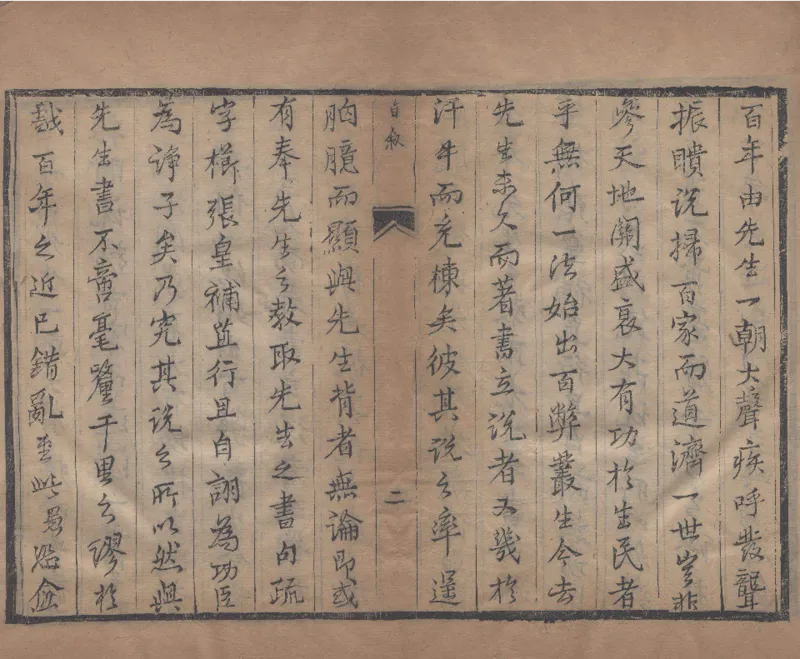 百年由先生一朝大聲疾呼發聾
振聵說掃百家而道濟一世豈非
參天地關盛衰大有功於生民者
乎無何一法始出百弊叢生今去
先生未久而著書立說者又幾於
汗牛而充棟矣彼其說之率逞
自敘
二
胸臆而顯與先生背者無論即或
有奉先生之教取先生之書句疏
字櫛張皇補苴行且自詡為功臣
為諍子矣乃究其說之所以然與
先生書不啻毫釐千里之繆於
戲百年之近已錯亂至此愚恐